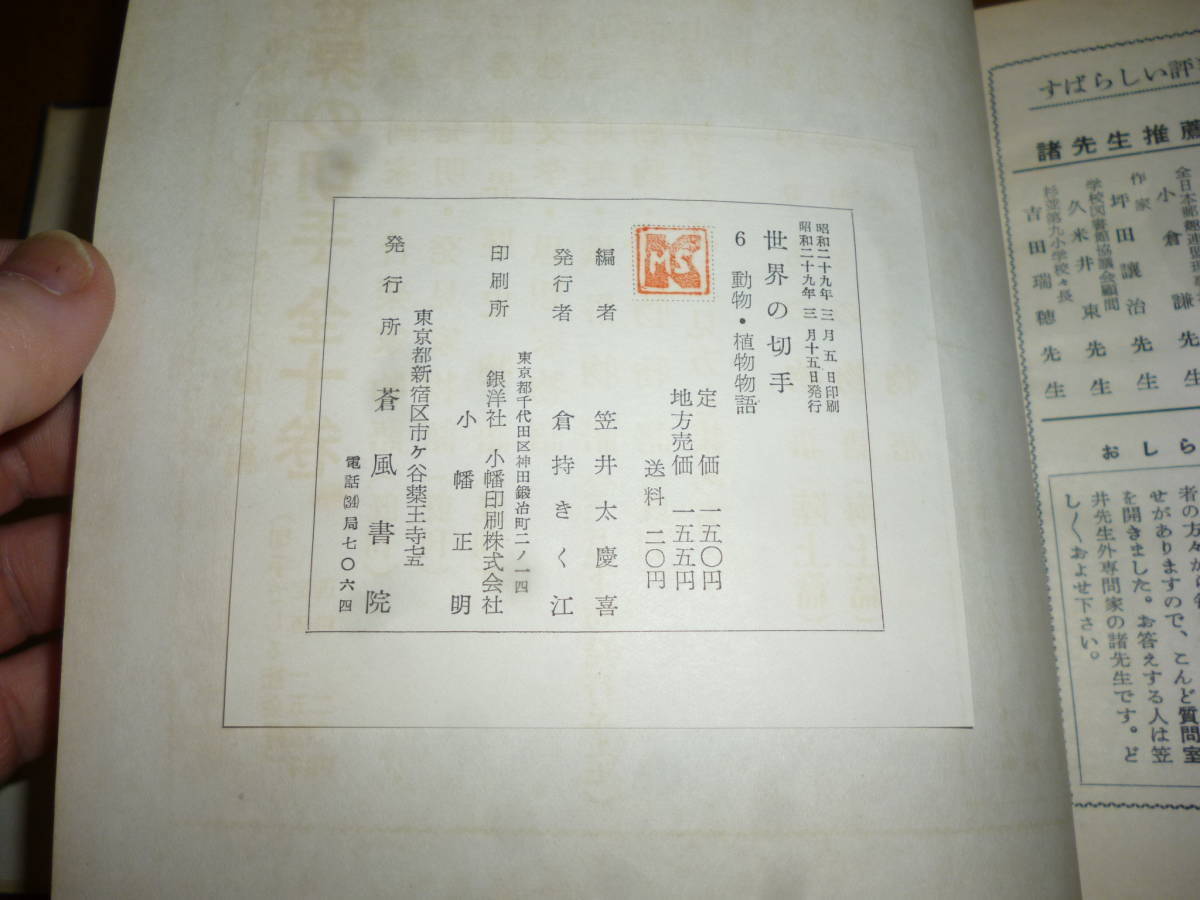 すばらしい評
諸先生推薦
小倉謙先生
作家
坪田譲治先生
学校図書館協議会顧問
久米井束先生
杉並第九小学校々長
吉田瑞穂先生
おしら
せがありますので、こんど質問室
を開きました。お答えする人は笠
井先生外専門家の諸先生です。ど
し〱およせ下さい。
昭和二十九年 三月 五 日印刷
昭和二十九年 三月十五日発行
世界の切手
6 動物・植物物語
定価 一五〇円
地方売価 一五五円
送料 二〇円
MS
編者 笠井太慶喜
発行者 倉持きく江
東京都千代田区神田鍛冶町二ノ一四
印刷所 銀洋社 小幡印刷株式会社
小幡正明
東京都新宿区市ヶ谷薬王寺七五
発行所 蒼風書院
電話(34)局七〇六四